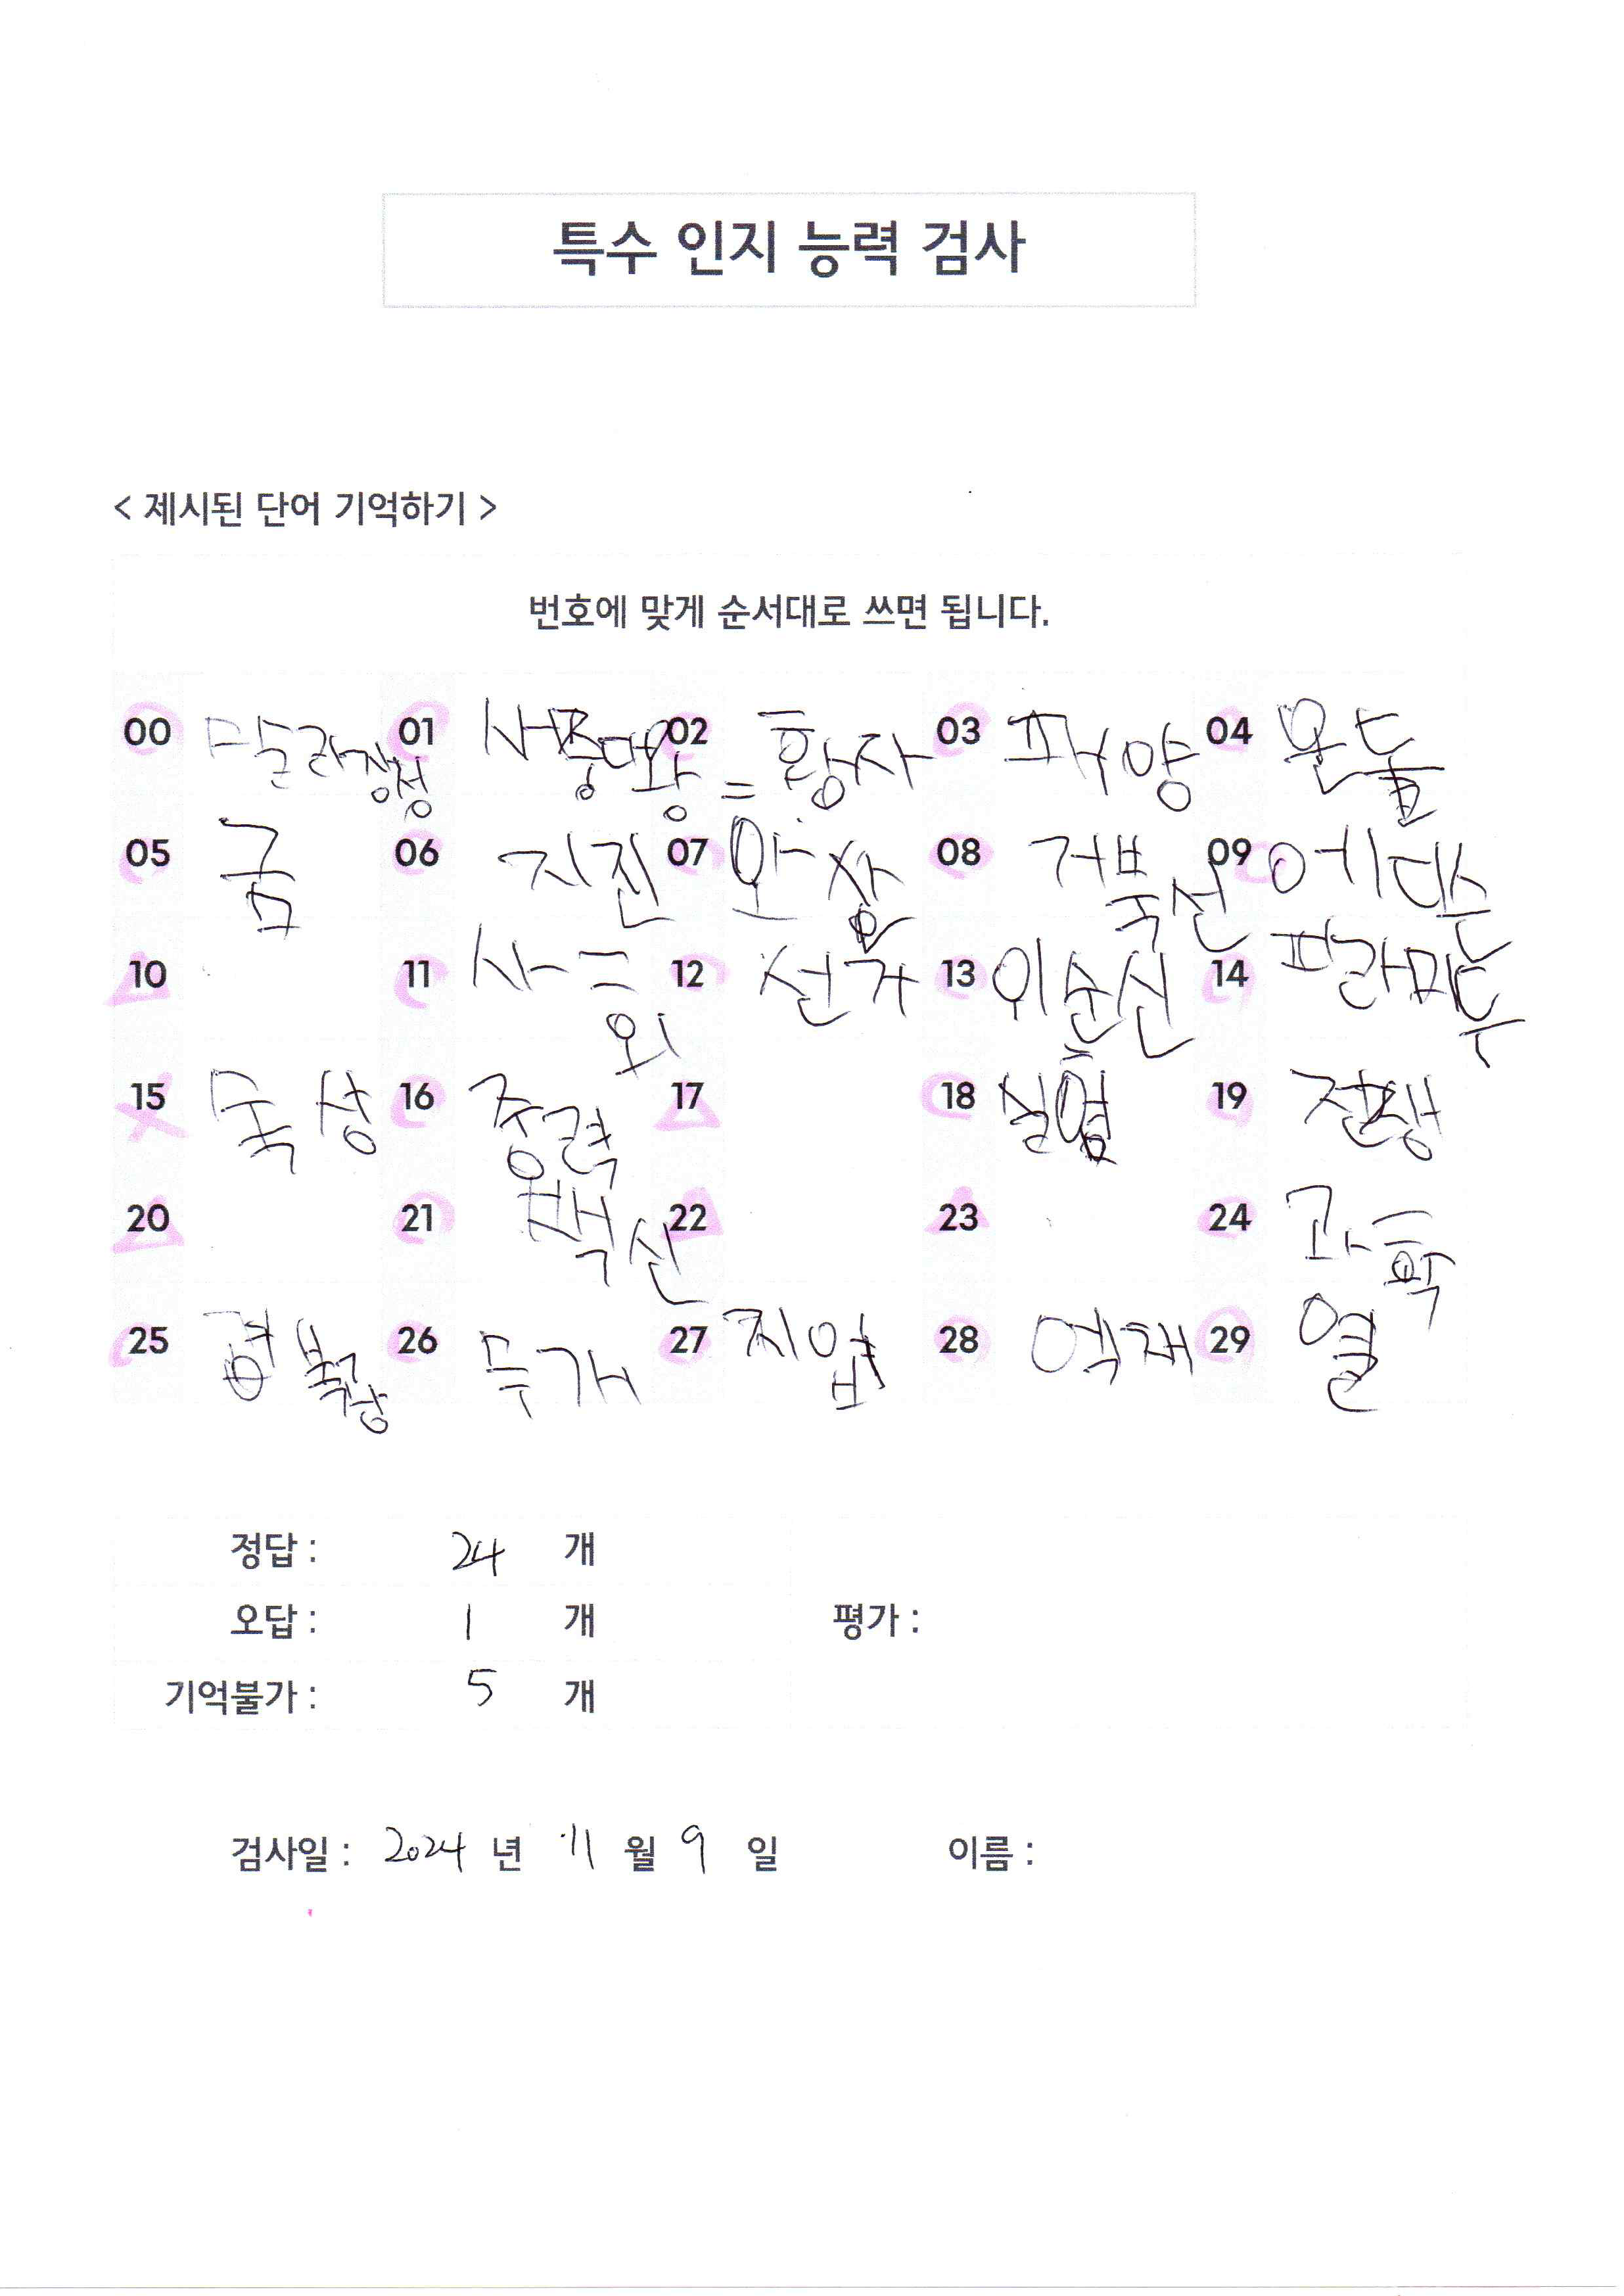 특수 인지 능력 검사
< 제시된 단어 기억하기 >
번호에 맞게 순서대로 쓰면 됩니다.
00 만리장성 01 세종대왕 02 황자 03 태양 04 온돌
05 금 06 지진 07 암살 08 거북선 09 에디슨
10 11 사회 12 선거 13 이순신 14 피라미드
15 독성 16 중력 17 18 실험 19 전쟁
20 21 백신 22 23 24 과학
25 경복궁 26 무게 27 직업 28 억제 29 열
정답 : 24 개
오답 : 1 개 평가 :
기억불가 : 5 개
검사일 : 2024 년 11 월 9 일 이름 :